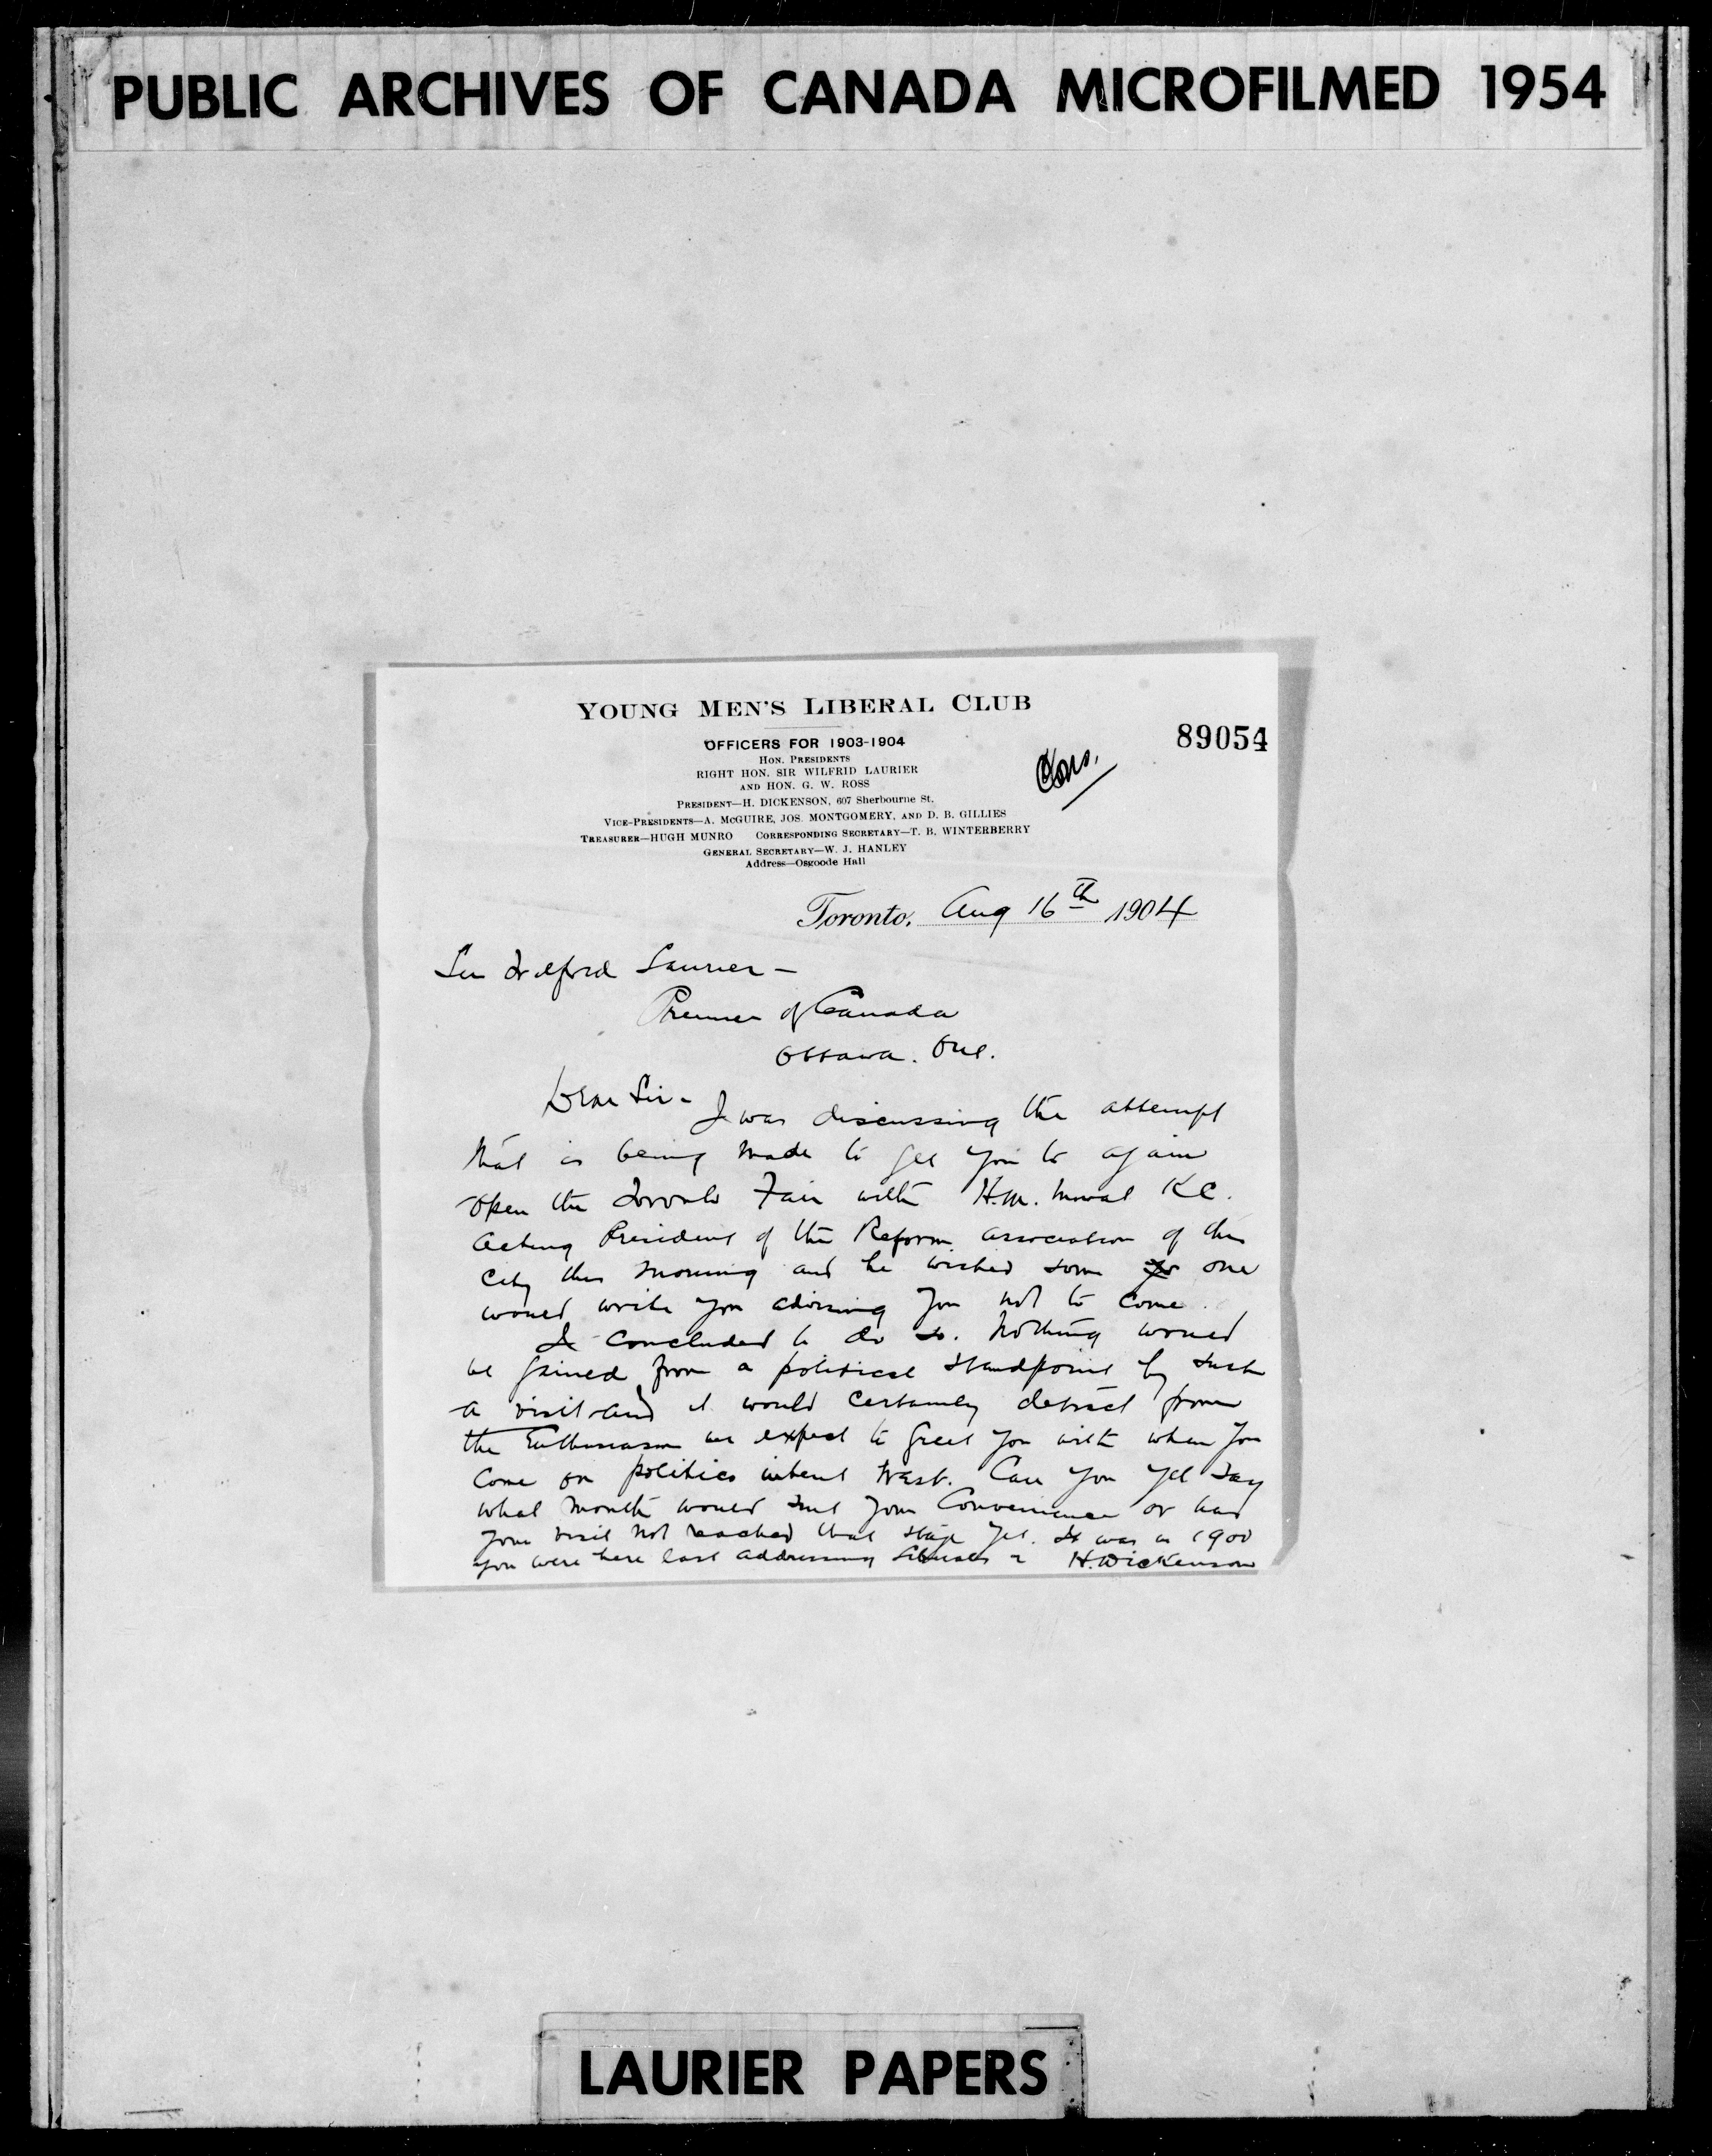 PUBLIC ARCHIVES OF CANADA MICROFILMED 1954
YOUNG MEN'S LIBERAL CLUB
89054
OFFICERS FOR 1903-1904
HON. PRESIDENTS
RIGHT HON. SIR WILFRID LAURIER
AND HON. G. W. ROSS
PRESIDENT—H. DICKENSON, 607 Sherbourne St.
VICE-PRESIDENTS—A. McGUIRE, JOS. MONTGOMERY, AND D. B. GILLIES
TREASURER—HUGH MUNRO CORRESPONDING SECRETARY—T. B. WINTERBERRY
GENERAL SECRETARY—W. J. HANLEY
Address—Osgoode Hall
Toronto, Aug 16th 1904
Sir Wilfred Laurier –
Premier of Canada
Ottawa. Ont.
Dear Sir –
I was discussing the attempt
that is being made to get you to again
open the Toronto Fair with H.M. Mowat KC.
Acting President of the Reform association of this
City this morning and he wished some one
would write you advising you not to come.
I concluded to do so. Nothing would
be gained from a political standpoint by such
a visit and it would certainly detract from
the Enthusiasm we expect to greet you with when you
come on politics intent West. Can you yet say
what month would suit your Convenience or has
your visit not reached that stage yet. It was in 1900
you were here last addressing Liberals – H. Dickenson
LAURIER PAPERS